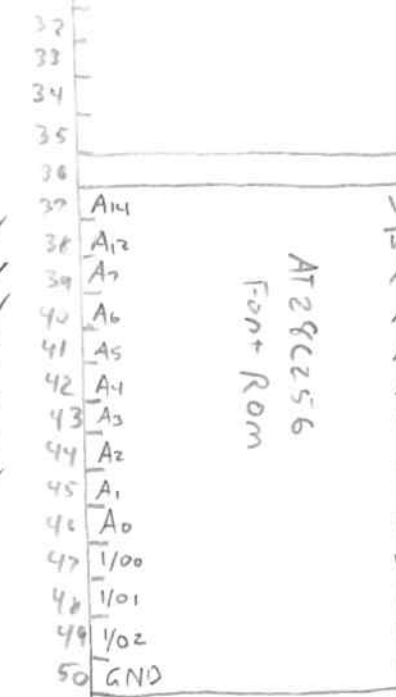 32
33
34
35
36
37 A14
38 A12
39 A7
40 A6
41 A5
42 A4
43 A3
44 A2
45 A1
46 A0
47 I/O0
48 I/O1
49 I/O2
50 GND
AT28C256
Font Rom